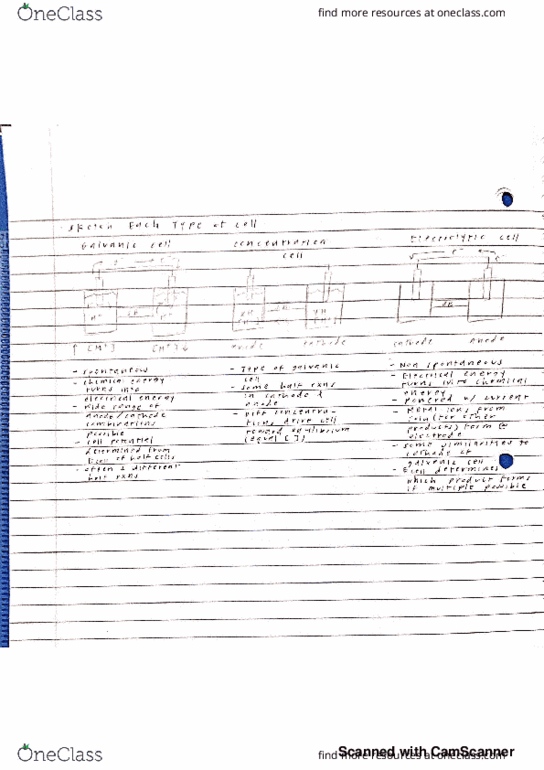 OneClass
find more resources at oneclass.com
Sketch Each Type of cell
Galvanic cell
concentration cell
Electrolytic cell
e-
e-
↑ [M+]
[M+] ↓
anode
cathode
cathode
Anode
- spontaneous
- chemical energy
turns into
electrical energy
- wide range of
anode/cathode
combinations
possible
- cell potential
determined from
Ecell of half cells
- often 2 different
half rxns
- Type of galvanic
cell
- same half rxns
in cathode &
anode
- diff concentra-
tions drive cell
toward equilibrium
(equal [ ])
- Non spontaneous
- Electrical energy
turns into chemical
energy
- powered w/ current
- Metal ions from
soln (or other
products) form @
electrode
- some similarities to
cathode of
galvanic cell
- Ecell determines
which product forms
if multiple possible
OneClass
find more resources at oneclass.com
Scanned with CamScanner